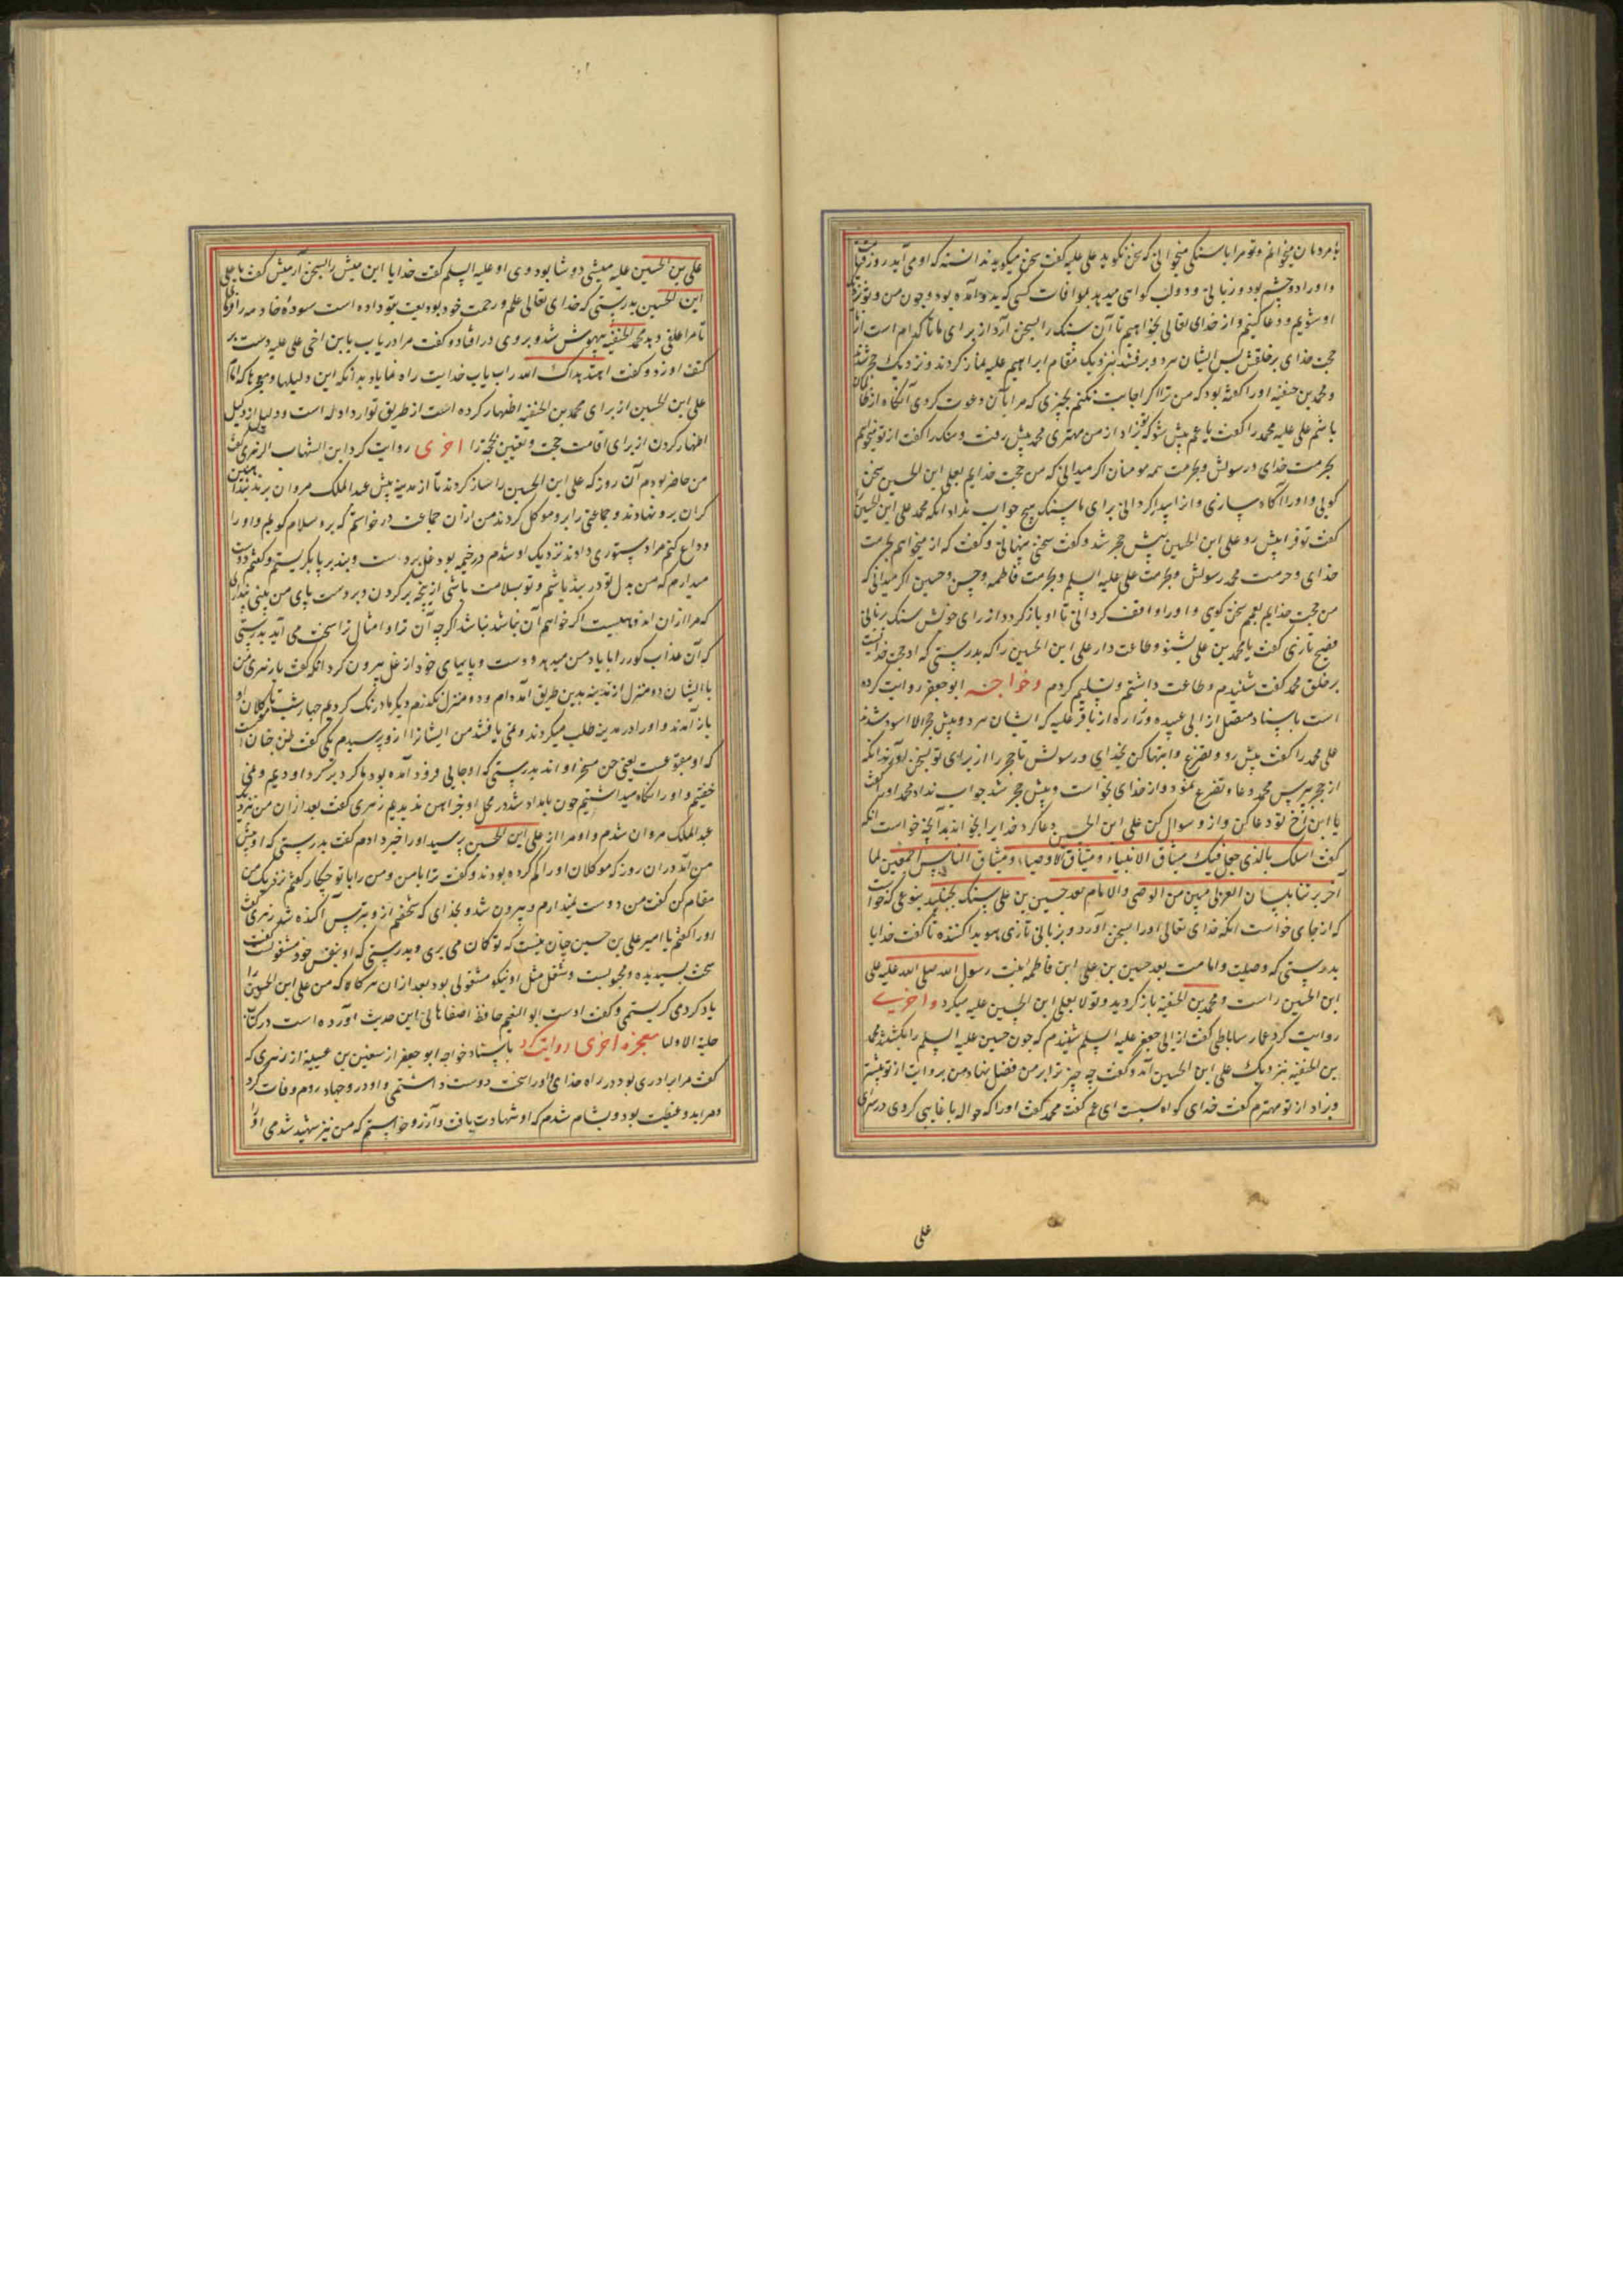 با مردمان میخوانم و تو مرا با سنگی میخوانی که سخن نگوید علی علیه گفت سخن میگوید ندانسته که او می آید روز قیامت
و او را دو چشم بود و زبانی و دو لب گواهی میدهد بموافات کسی که بدو آمده بود و چون من و تو نزدیک
او شویم و دعا کنیم و از خدای تعالی بخواهیم تا آن سنگ را بسخن آرد از برای ما تا کدام است از ما
حجت خدای بر خلقش پس ایشان هر دو برفتند بنزدیک مقام ابراهیم علیه نماز کردند و نزدیک حجر شدند
و محمد بن حنفیه او را گفته بود که من ترا اگر اجابت نکنم بچیزی که مرا با آن دعوت کردی آنگاه از ظالمان
باشم علی علیه محمد را گفت یا عم پیش شو که تو بزاد از من مهتری محمد پیش رفت و سنگ را گفت از تو میخواهم
بحرمت خدای و رسولش و بحرمت همه مومنان اگر میدانی که من حجت خدایم بعلی ابن الحسین سخن
گویی و او را آگاه سازی و از پیدا گردانی برای ما سنگ هیچ جواب نداد آنگه محمد علی ابن الحسین را
گفت تو فرا پیش رو علی ابن الحسین پیش حجر شد و گفت سخنی پنهانی و گفت که از میخواهم بحرمت
خدای و حرمت محمد رسولش و بحرمت علی علیه السلم و بحرمت فاطمه و حسن و حسین اگر میدانی که
من حجت خدایم بعمم سخن گوی و او را واقف گردانی تا او باز گردد از رای خویش سنگ بزبانی
فصیح تازی گفت یا محمد بن علی بشنو و طاعت دار علی ابن الحسین را که بدرستی که او حجت خداست
بر خلق محمد گفت شنیدم و طاعت داشتم و تسلیم کردم و خواجه ابو جعفر روایت کرده
است باسناد متصل از ابی عبیده و زراره از باقر علیه که ایشان هر دو پیش حجر الاسود شدند
علی محمد را گفت پیش رو و تضرع و ابتهال کن بخدای و رسولش تا حجر را از برای تو بسخن آورد آنگه
از حجر بپرس محمد دعا و تضرع نمود و از خدای بخواست و پیش حجر شد جواب نداد محمد او را گفت
یا ابن اخ تو دعا کن و از و سوال کن علی ابن الحسین دعا کرد خدایرا بخواند بدانچه خواست آنگه
گفت اسئلک بالذی جعل فیک میثاق الانبیاء و میثاق الاوصیاء و میثاق الناس اجمعین لما
اخبرتنا بلسان العربی مبین من الوصی و الامام بعد حسین بن علی سنگ بجنبید بنوعی که خواست
که از جای خواست آنگه خدای تعالی او را بسخن آورد و بزبانی تازی هویدا کننده تا گفت خدایا
بدرستی که وصیت و امامت بعد حسین بن علی ابن فاطمه بنت رسول الله صلی الله علیه علی
ابن الحسین راست و محمد بن الحنفیه بازگردید و تولا بعلی ابن الحسین علیه میکرد و اخری
روایت کرد عمار ساباطی گفت از ابی جعفر علیه السلم شنیدم که چون حسین علیه السلم را بکشتند محمد
بن الحنفیه بنزدیک علی ابن الحسین آمد و گفت چه چیز ترا بر من فضل نهاد من بروایت از تو بیشترم
و بزاد از تو مهترم گفت خدای گواه بست ای عم گفت محمد گفت او را که حواله با غایبی کردی در سرای
علی
علی بن الحسین علیه میشی دوشا بود وی او علیه السلم گفت خدایا این میش را بسخن آر میش گفت یا علی
ابن الحسین بدرستی که خدای تعالی علم و رحمت خود بودیعت بتو داده است سوده خادمه را فرما
تا مرا علفی دهد محمد الحنفیه بیهوش شد و بروی در افتاد و گفت مرا دریاب یا بن اخی علی علیه دست بر
کتف او زد و گفت اهتد هداک الله راه یاب خدایت راه نمایاد بدانکه این دلیلها و معجزها که امام
علی ابن الحسین از برای محمد بن الحنفیه اظهار کرده است از طریق توارد ادله است و دلیل از دلیل
اظهار کردن از برای اقامت حجت و تعیین محجه را اخری روایت کرد ابن الشهاب الزهری گفت
من حاضر بودم آن روز که علی ابن الحسین را ساز کردند تا از مدینه پیش عبد الملک مروان برند بندی آهنین
گران برو نهادند و جماعتی را برو موکل کردند من از آن جماعت درخواستم که برو سلام گویم و او را
وداع کنم مرا دستوری دادند نزدیک او شدم در خیمه بود غل بر دست و بند بر پا بگریستم و گفتم دوست
میدارم که من بدل تو در بند باشم و تو بسلامت باشی از آنچه بر گردن و بر دست پای من بینی پنداری
که مرا از آن اندوهیست اگر خواهم آن نباشد نباشد اگرچه آن ترا و امثال ترا سخت می آید بدرستی
که آن عذاب گور را با یاد من میدهد و دست و پایهای خود از غل بیرون کرد آنگه گفت یا زهری من
با ایشان دو منزل از مدینه بدین طریق آمده ام و دو منزل نگذرم دیگر ما درنگ کردیم چهار شب تا موکلان او
باز آمدند و او را در مدینه طلب میکردند و نمی یافتند من ایشانرا از و پرسیدم یکی گفت ظن چنان است
که او متبوعست یعنی جن مسخر او اند بدرستی که او جایی فرود آمده بود ما گرد بر گرد او بودیم و نمی
خفتیم و او را نگاه میداشتیم چون بامداد شد در محل او جز آهن ندیدیم زهری گفت بعد از آن من نزدیک
عبد الملک مروان شدم و او مرا از علی ابن الحسین پرسید او را خبر دادم گفت بدرستی که او پیش
من آمد در آن روز که موکلان او را گم کرده بودند و گفت ترا با من و من را با تو چکار گفتم نزدیک من
مقام کن گفت من دوست نمیدارم و بیرون شد و بخدای که شخصم از و بترس آکنده شد زهری گفت
او را گفتم یا امیر علی بن حسین چنان نیست که تو گمان می بری و بدرستی که او بنفس خود مشغولست گفت
سخت پسندیده و محبوبست و شغل مثل او نیکو مشغولی بود بعد از آن هر گاه که من علی ابن الحسین را
یاد کردمی گریستمی و گفت اوست ابو النعیم حافظ اصفاهانی این حدیث آورده است در کتاب
حلیة الاولیا معجزه اخری روایت کرد باسناد خواجه ابو جعفر از سفین بن عیینه از زهری که
گفت مرا برادری بود در راه خدای و او را سخت دوست داشتمی و او در جهاد روم وفات کرد
و مرا بدو غبطت بود و شام شدم که او شهادت یافت و آرزو خواستم که من نیز شهید شدمی او را